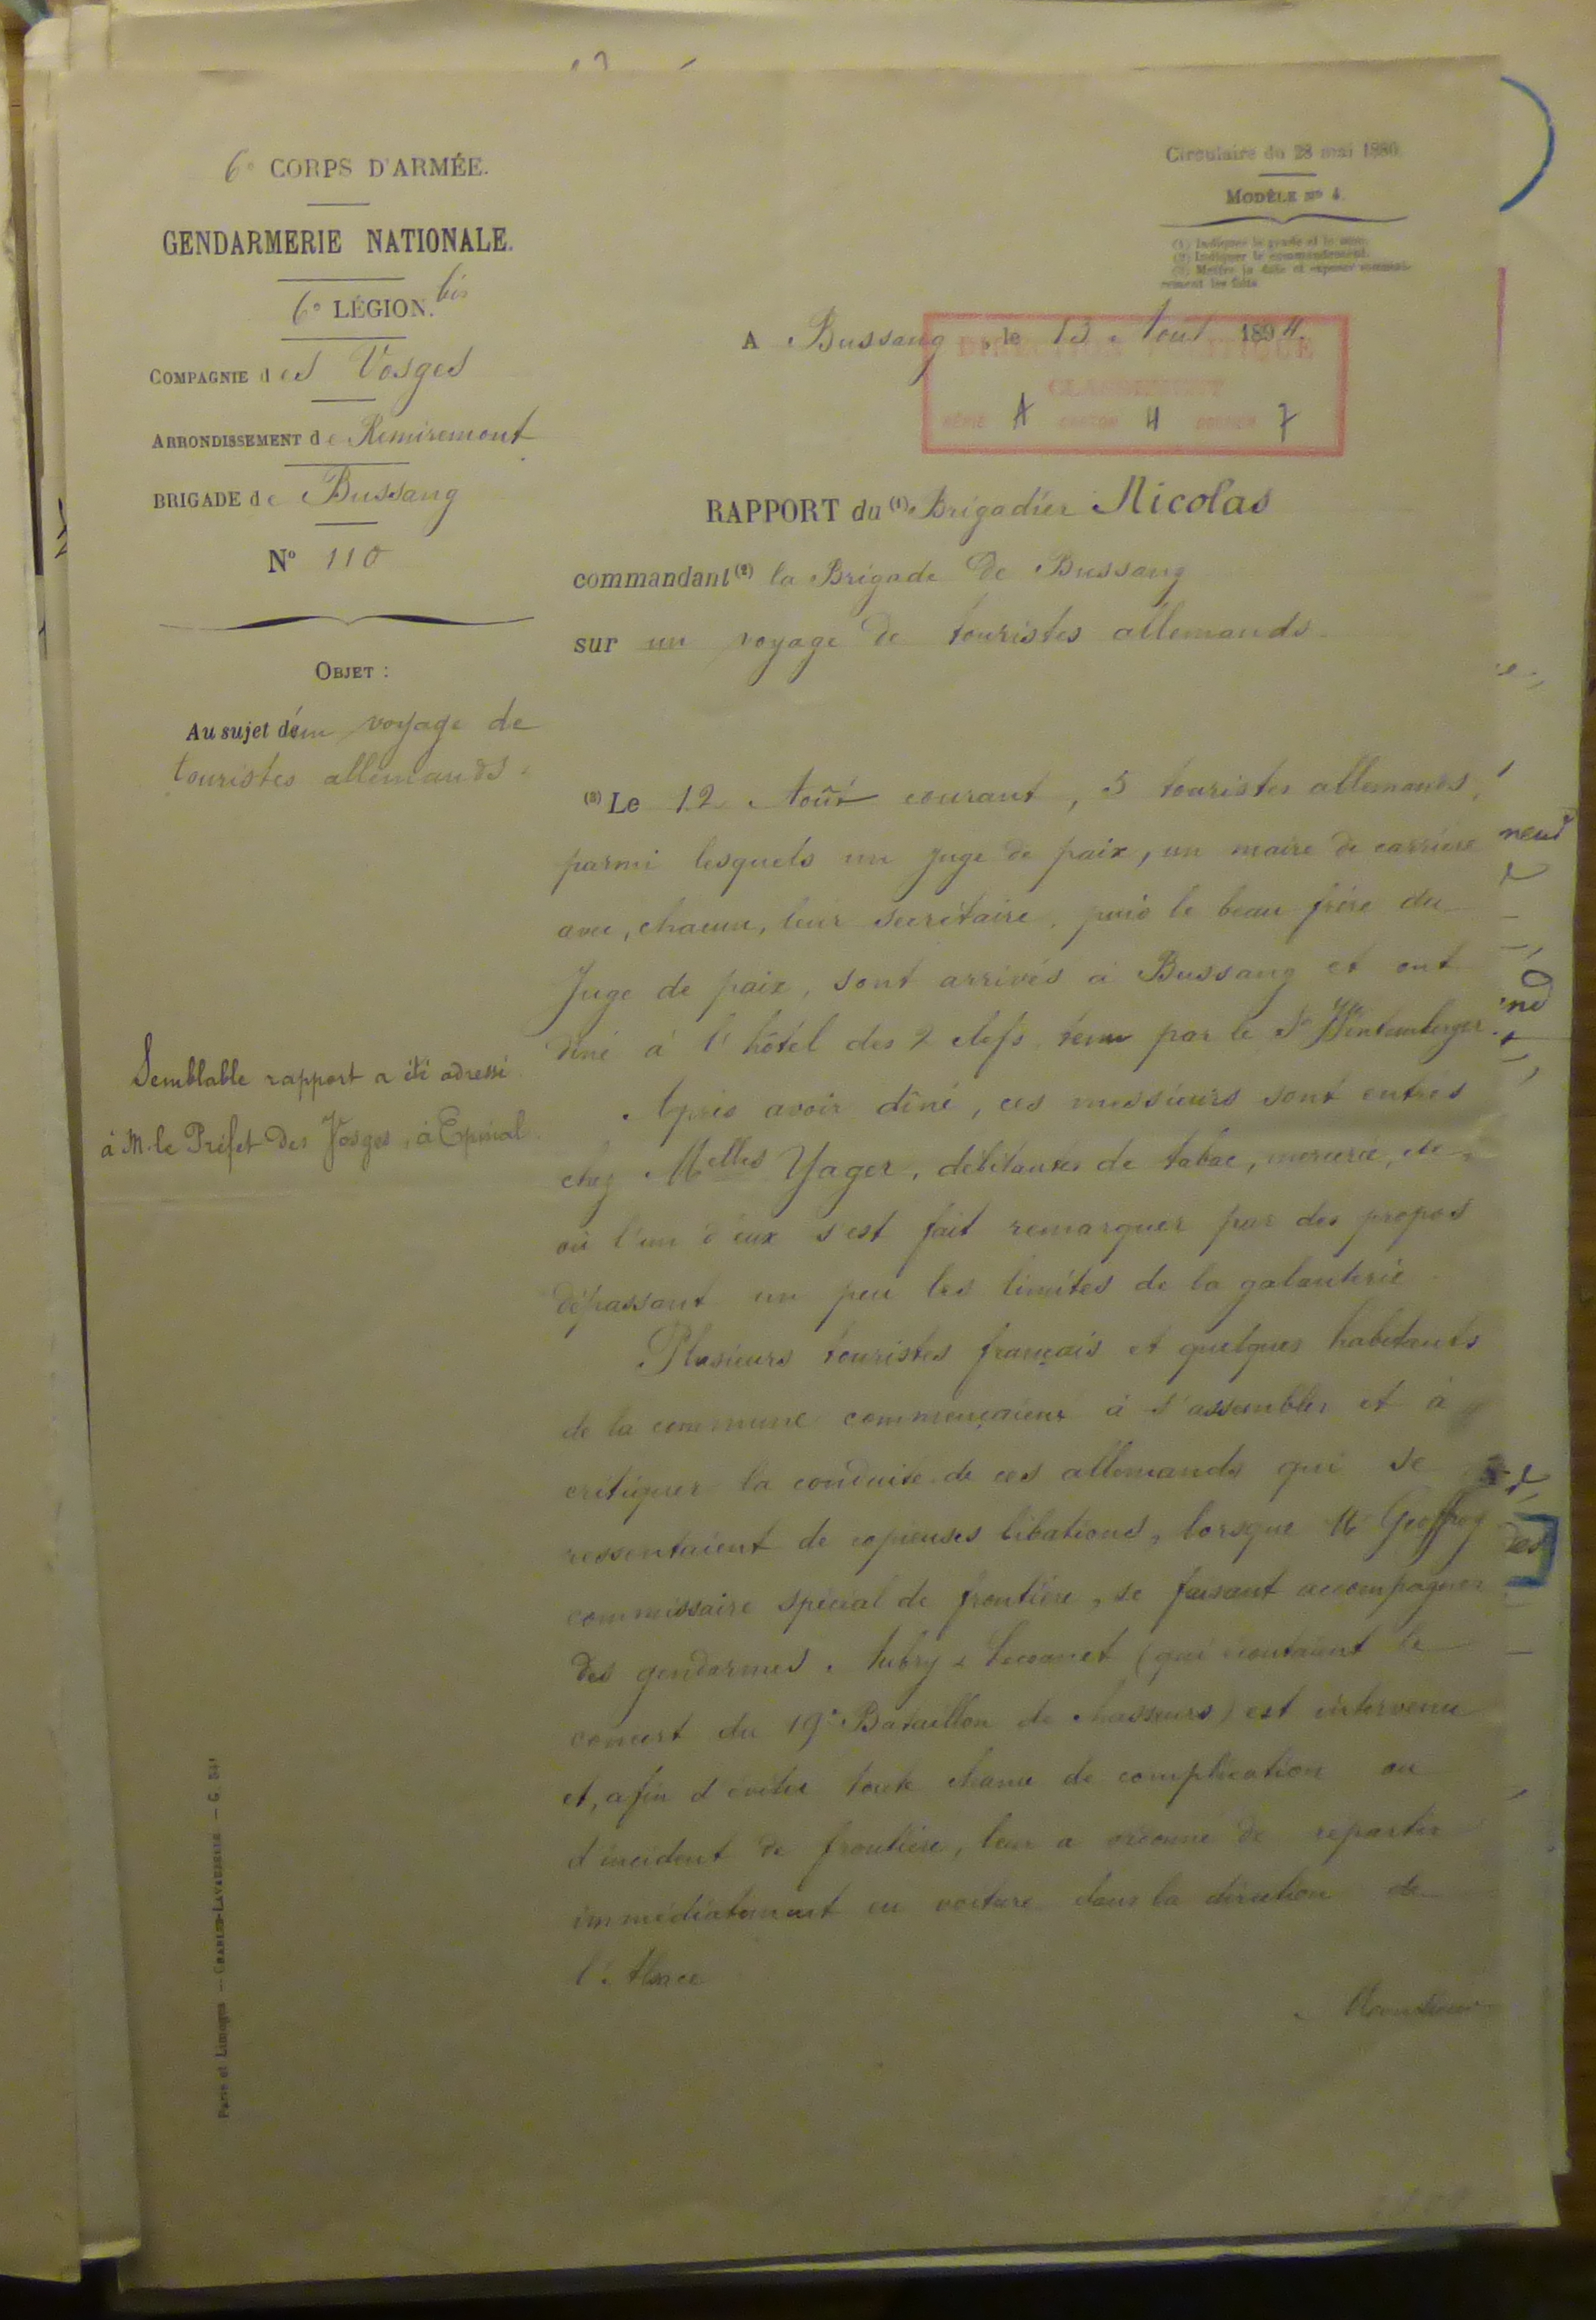 6e CORPS D'ARMÉE.
GENDARMERIE NATIONALE.
6e LÉGION. bis
COMPAGNIE des Vosges
ARRONDISSEMENT de Remiremont
BRIGADE de Bussang
N° 110
OBJET :
Au sujet d'un voyage de
touristes allemands.
Semblable rapport a été adressé
à M. le Préfet des Vosges, à Epinal.
Circulaire du 28 mai 1880.
MODÈLE N° 4.
(1) Indiquer le grade et le nom.
(2) Indiquer le commandement.
(3) Mettre la date et exposer sommai-
rement les faits.
A Bussang, le 13 Août 1894.
DIRECTION POLITIQUE
CLASSEMENT
SÉRIE A CARTON 4 DOSSIER 7
RAPPORT du (1) Brigadier Nicolas
commandant (2) la Brigade de Bussang
sur un voyage de touristes allemands.
(3) Le 12 Août courant, 5 touristes allemands,
parmi lesquels un juge de paix, un maire de carrière
avec, chacun, leur secrétaire, puis le beau frère du
Juge de paix, sont arrivés à Bussang et ont
dîné à l'hôtel des 2 clefs tenu par le Sr
Après avoir dîné, ces messieurs sont entrés
chez Melles Yager, débitantes de tabac, mercerie, etc.,
où l'un d'eux s'est fait remarquer par des propos
dépassant un peu les limites de la galanterie.
Plusieurs touristes français et quelques habitants
de la commune commençaient à s'assembler et à
critiquer la conduite de ces allemands qui se
ressentaient de copieuses libations, lorsque Mr Geoffroy
commissaire spécial de frontière, se faisant accompagner
des gendarmes Aubry & Lecomet (qui écoutaient le
concert du 19e Bataillon de chasseurs) est intervenu
et, afin d'éviter toute chance de complication ou
d'incident de frontière, leur a ordonné de repartir
immédiatement en voiture dans la direction de
l'Alsace
Paris et Limoges. — CHARLES-LAVAUZELLE — G. 341